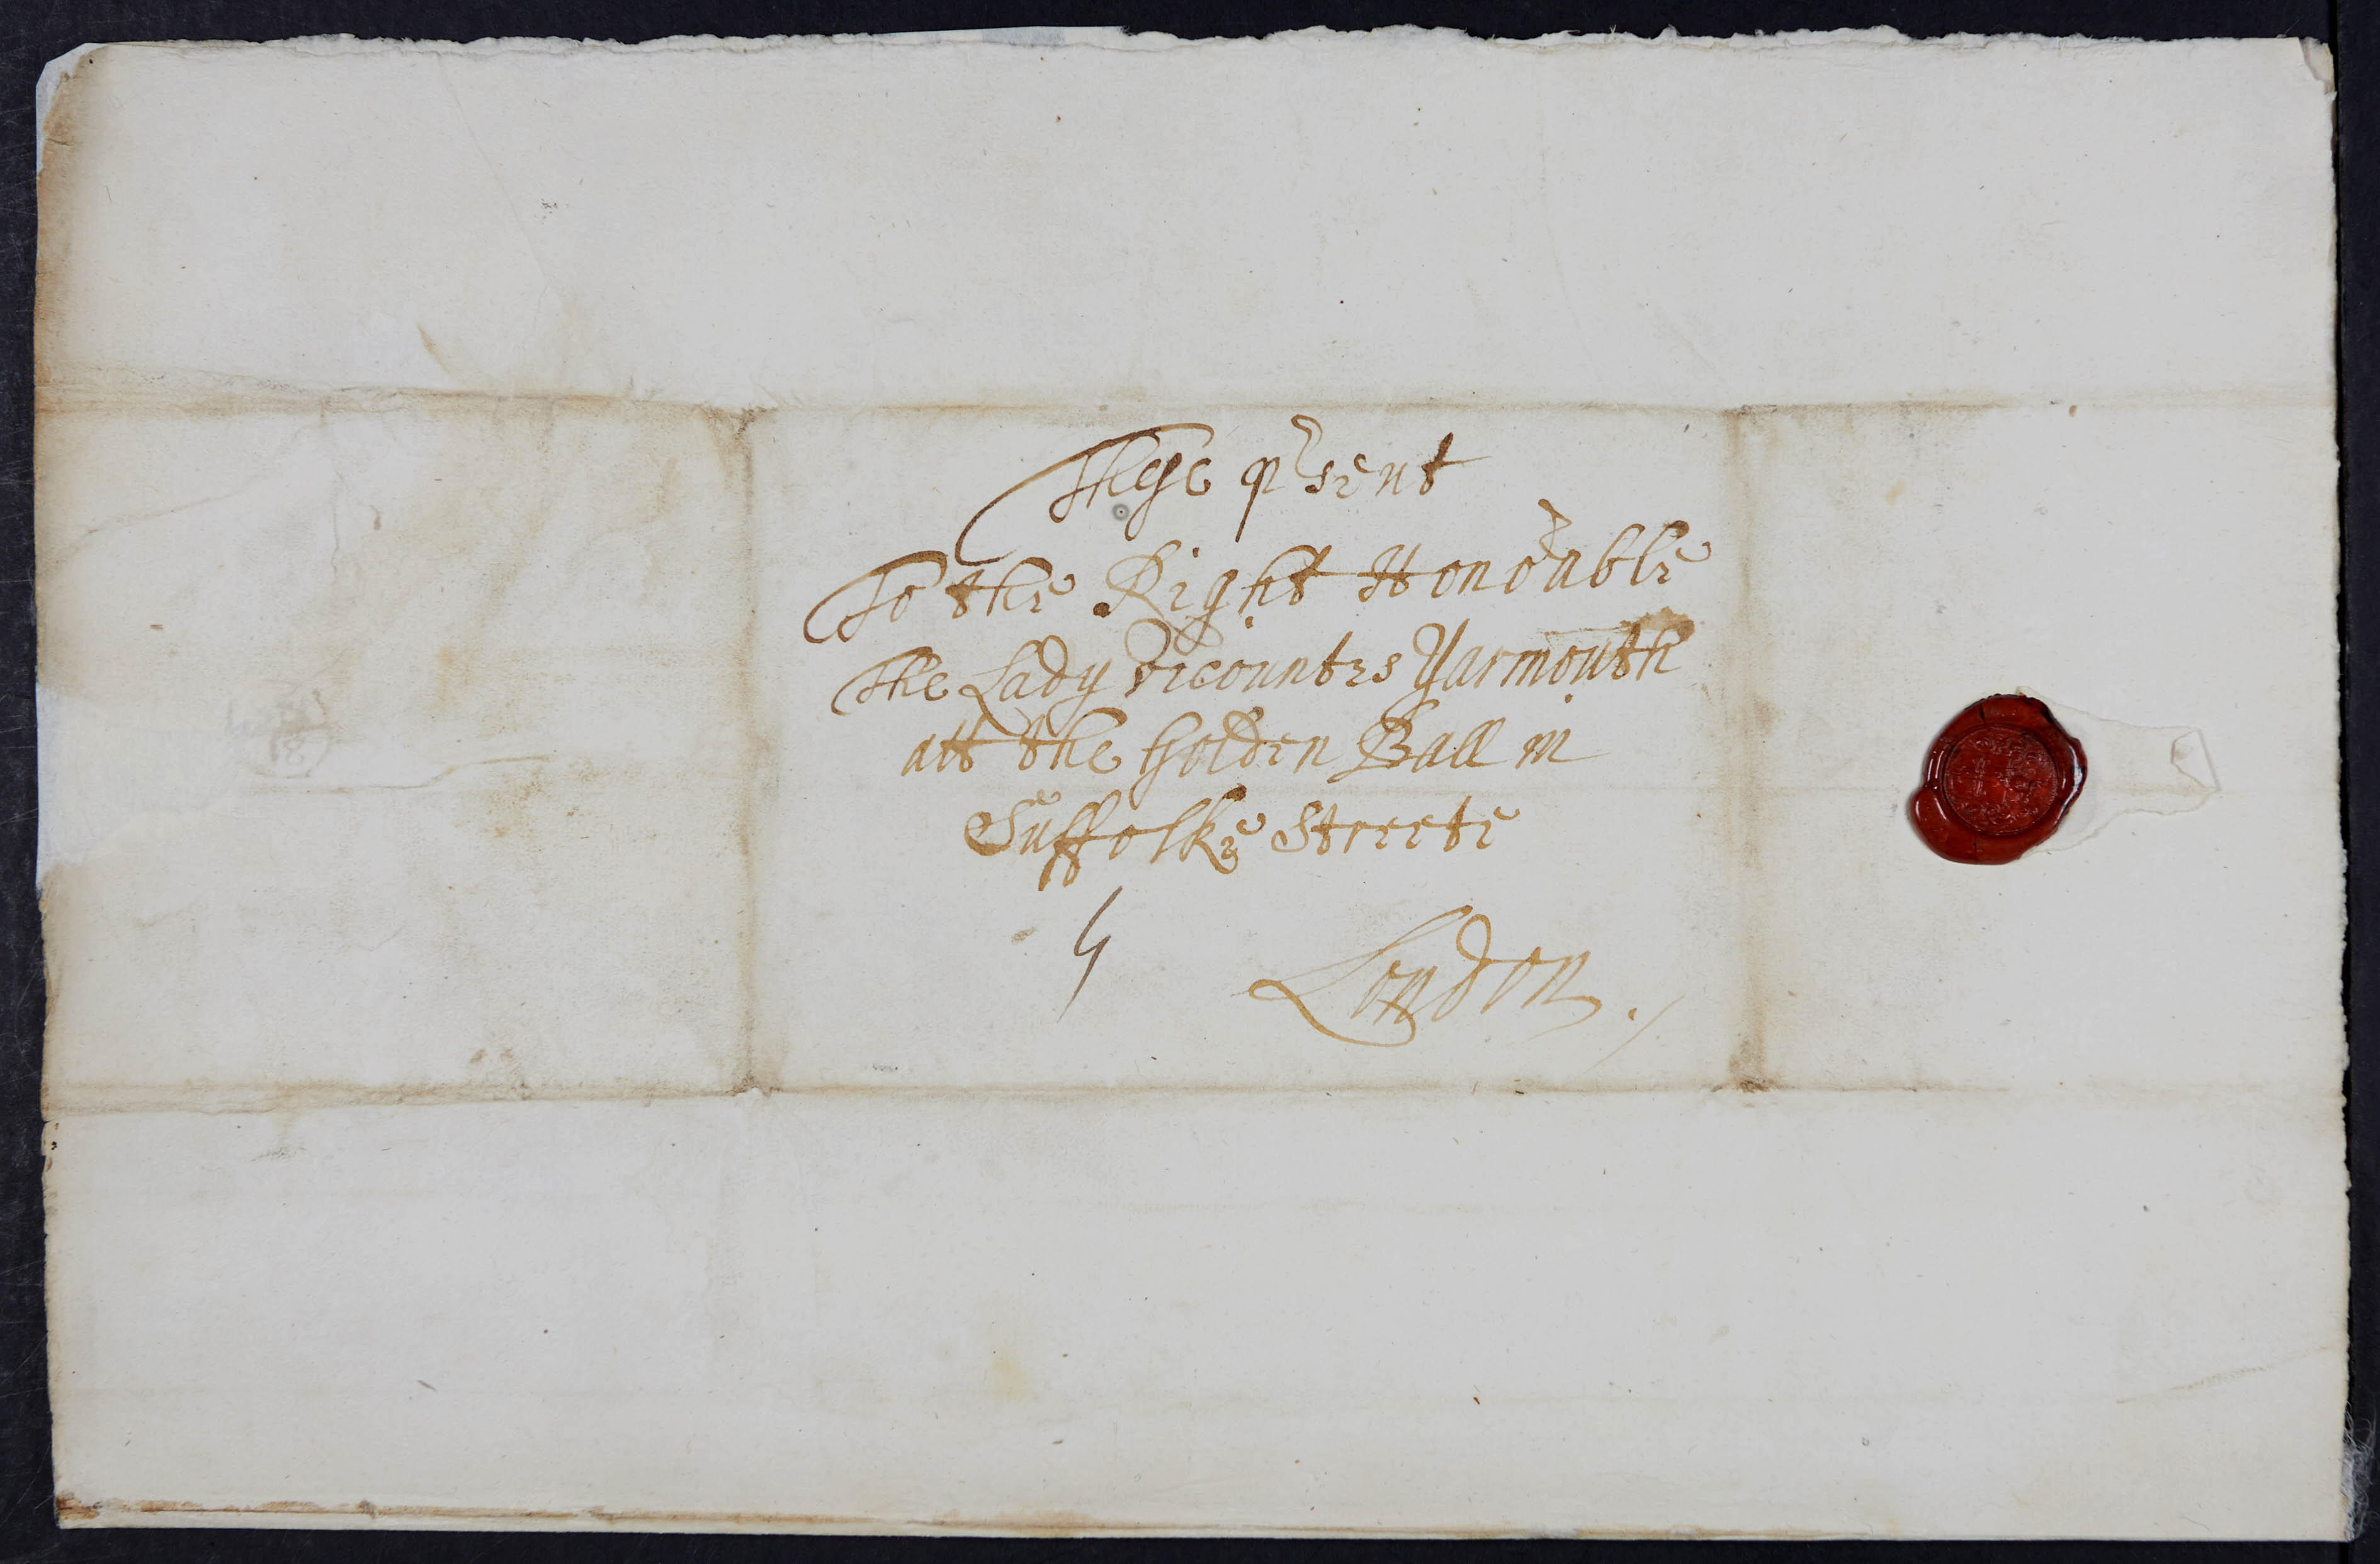 These p^rsent
To the Right Hono^rable
The Lady Vicountes Yarmouth
att the Golden Ball in
Suffolke Streete
4
London ./